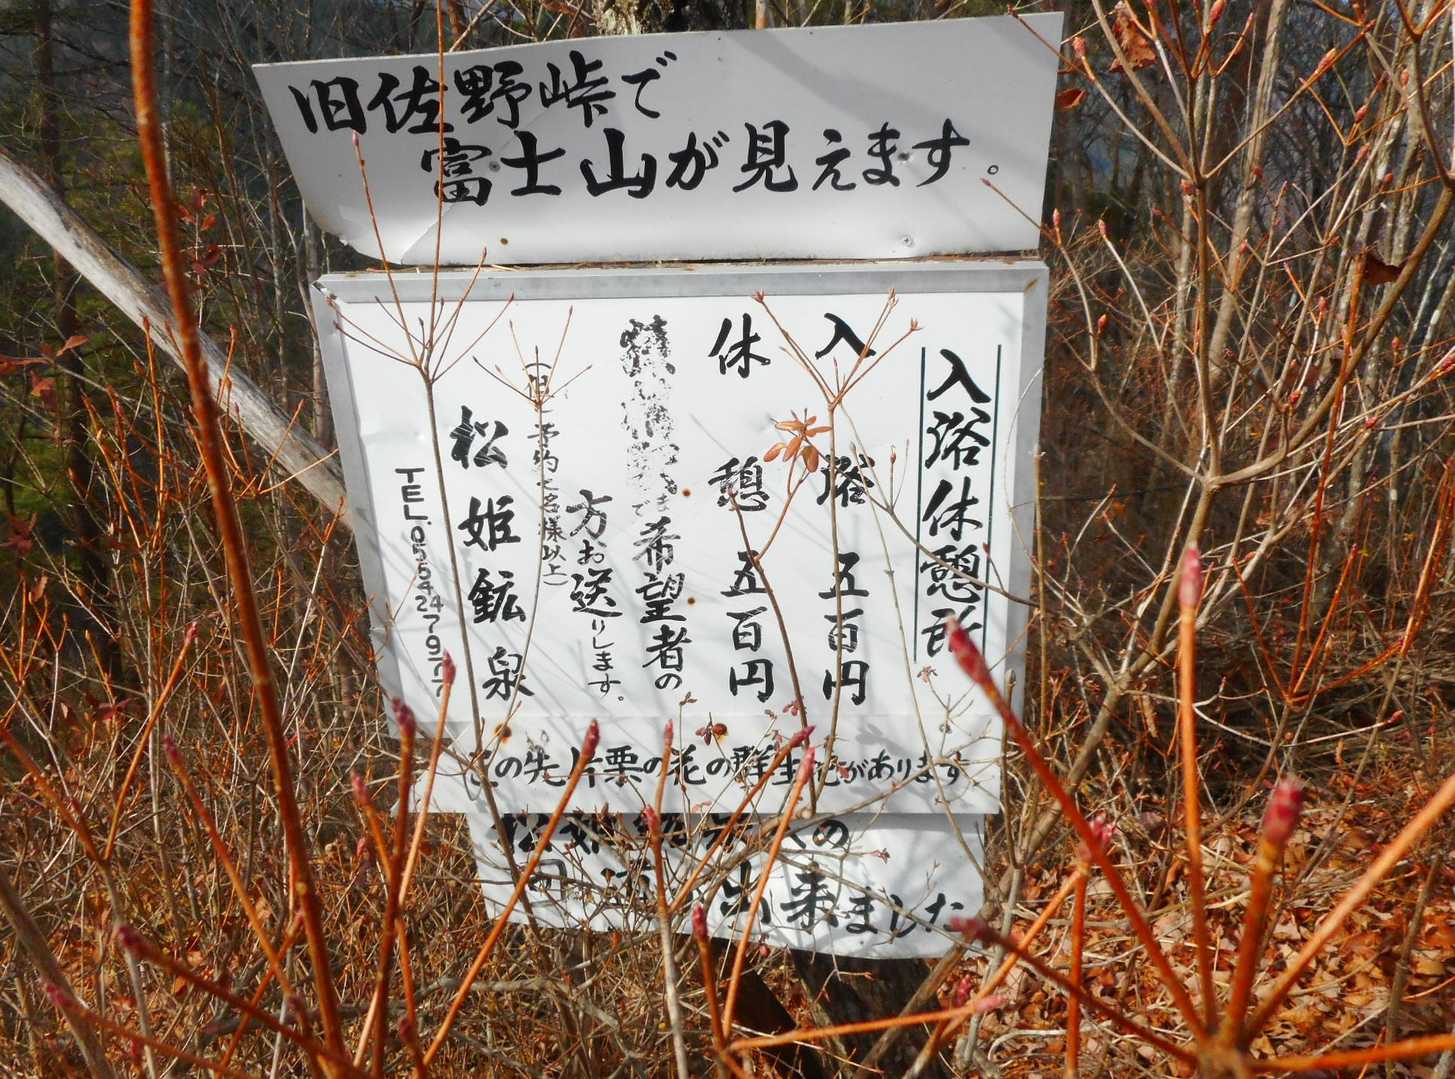 旧佐野峠で
富士山が見えます。
入浴休憩所
入浴 五百円
休憩 五百円
希望者の
方お送りします。
予約 名様以上)
松姫鉱泉
TEL.0554247977
この先片栗の花の群生地があります
の
出来ました